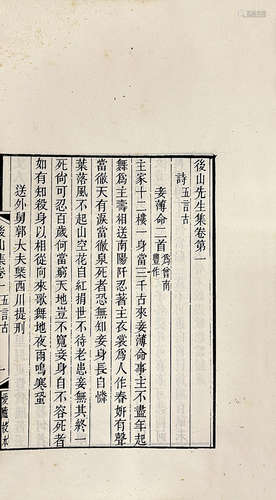 後山先生集卷第一
詩五言古
妾薄命二首為曾南豐作
主家十二樓一身當三千古來妾薄命事主不盡年起
舞為主壽相送南陽阡忍著主衣裳為人作春妍有聲
當徹天有淚當徹泉死者恐無知妾身長自憐
葉落風不起山空花自紅捐世不待老惠妾無其終一
死尚可忍百歲何當窮天地豈不寬妾身自不容死者
如有知殺身以相從向來歌舞地夜雨鳴寒蛩
送外舅郭大夫槩西川提刑
後山集卷一 五言古 一